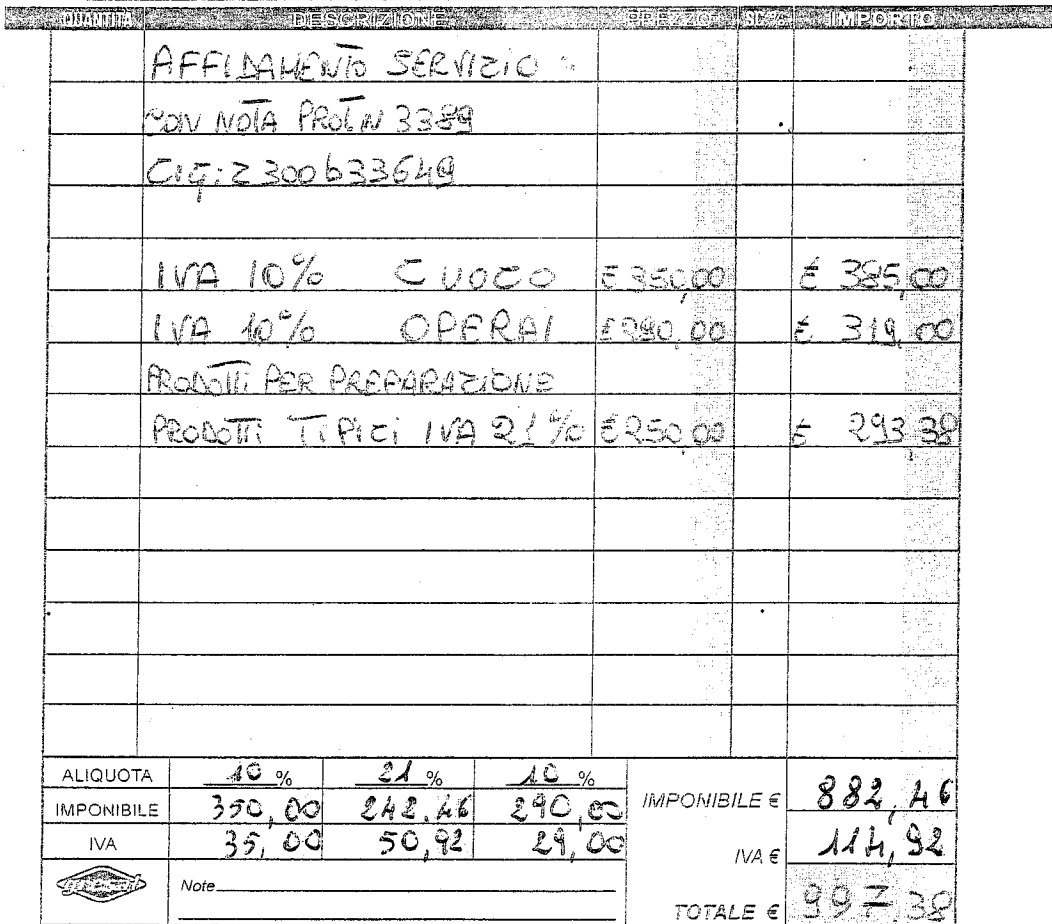 QUANTITÀ DESCRIZIONE PREZZO SC.% IMPORTO
AFFIDAMENTO SERVIZIO
CON NOTA PROT N 3389
CIG: Z300b33649
IVA 10% CUOCO € 350,00 € 385,00
IVA 10% OPERAI € 290,00 € 319,00
PRODOTTI PER PREPARAZIONE
PRODOTTI TIPICI IVA 21% € 250,00 € 293 38
ALIQUOTA 10 % 21 % 10 %
IMPONIBILE 350,00 242,46 290,00 IMPONIBILE € 882,46
IVA 35,00 50,92 29,00 IVA € 114,92
Note
TOTALE € 997,38